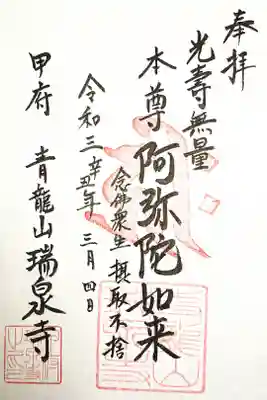 奉拝
光壽無量
本尊 阿弥陀如来
念佛衆生 摂取不捨
令和三辛丑年 三月四日
甲府 青龍山瑞泉寺